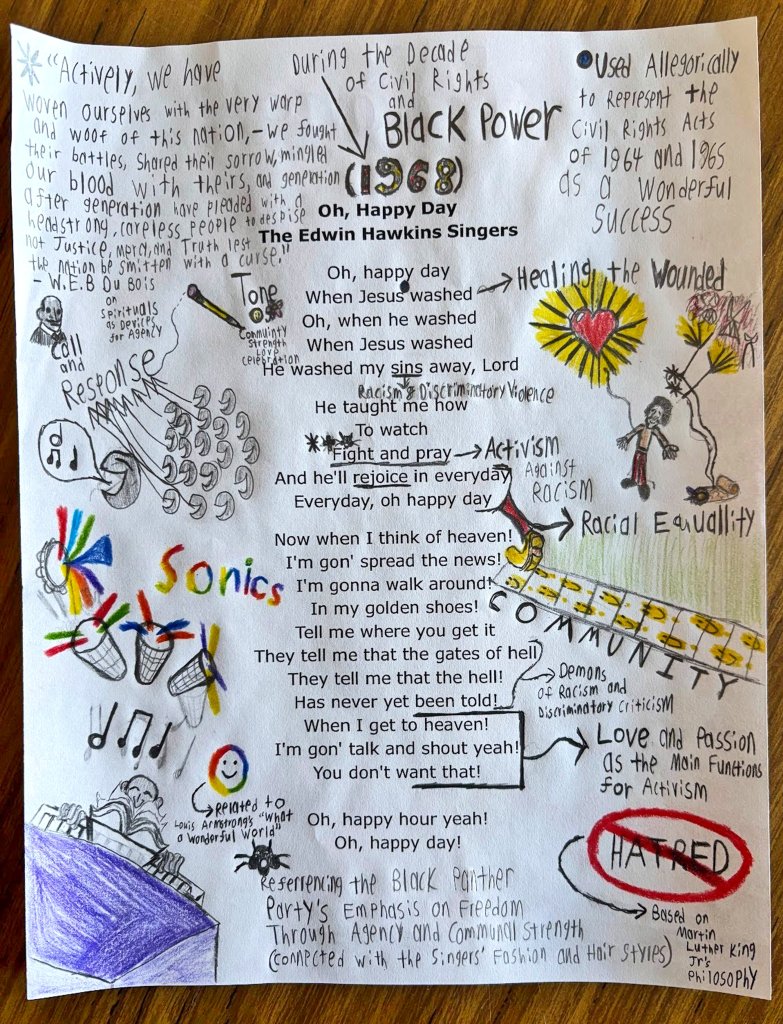 "Actively, we have
woven ourselves with the very warp
and woof of this nation,—we fought
their battles, shared their sorrow, mingled
our blood with theirs, and generation
after generation have pleaded with a
headstrong, careless people to despise
not Justice, Mercy, and Truth lest
the nation be smitten with a curse."
- W.E.B Du Bois
on
Spirituals
as Devices
for Agency
During the Decade
of Civil Rights
and
Black Power
(1968)
Used Allegorically
to Represent the
Civil Rights Acts
of 1964 and 1965
as a Wonderful
Success
Oh, Happy Day
The Edwin Hawkins Singers
Oh, happy day
When Jesus washed
Healing the Wounded
Oh, when he washed
When Jesus washed
He washed my sins away, Lord
Racism & Discriminatory Violence
Tone
Community
Strength
Love
Celebration
Call
and
Response
He taught me how
To watch
Fight and pray
Activism
Against
Racism
And he'll rejoice in everyday
Everyday, oh happy day
Racial Equallity
Now when I think of heaven!
I'm gon' spread the news!
I'm gonna walk around!
In my golden shoes!
COMMUNITY
Sonics
Tell me where you get it
They tell me that the gates of hell
They tell me that the hell!
Has never yet been told!
Demons
of Racism and
Discriminatory Criticism
When I get to heaven!
I'm gon' talk and shout yeah!
You don't want that!
Love and Passion
as the Main Functions
for Activism
Related to
Louis Armstrong's "What
a Wonderful World"
Oh, happy hour yeah!
Oh, happy day!
HATRED
Based on
Martin
Luther King
Jr's
Philosophy
Referrencing the Black Panther
Party's Emphasis on Freedom
Through Agency and Communal Strength
(connected with the Singers' Fashion and Hair Styles)